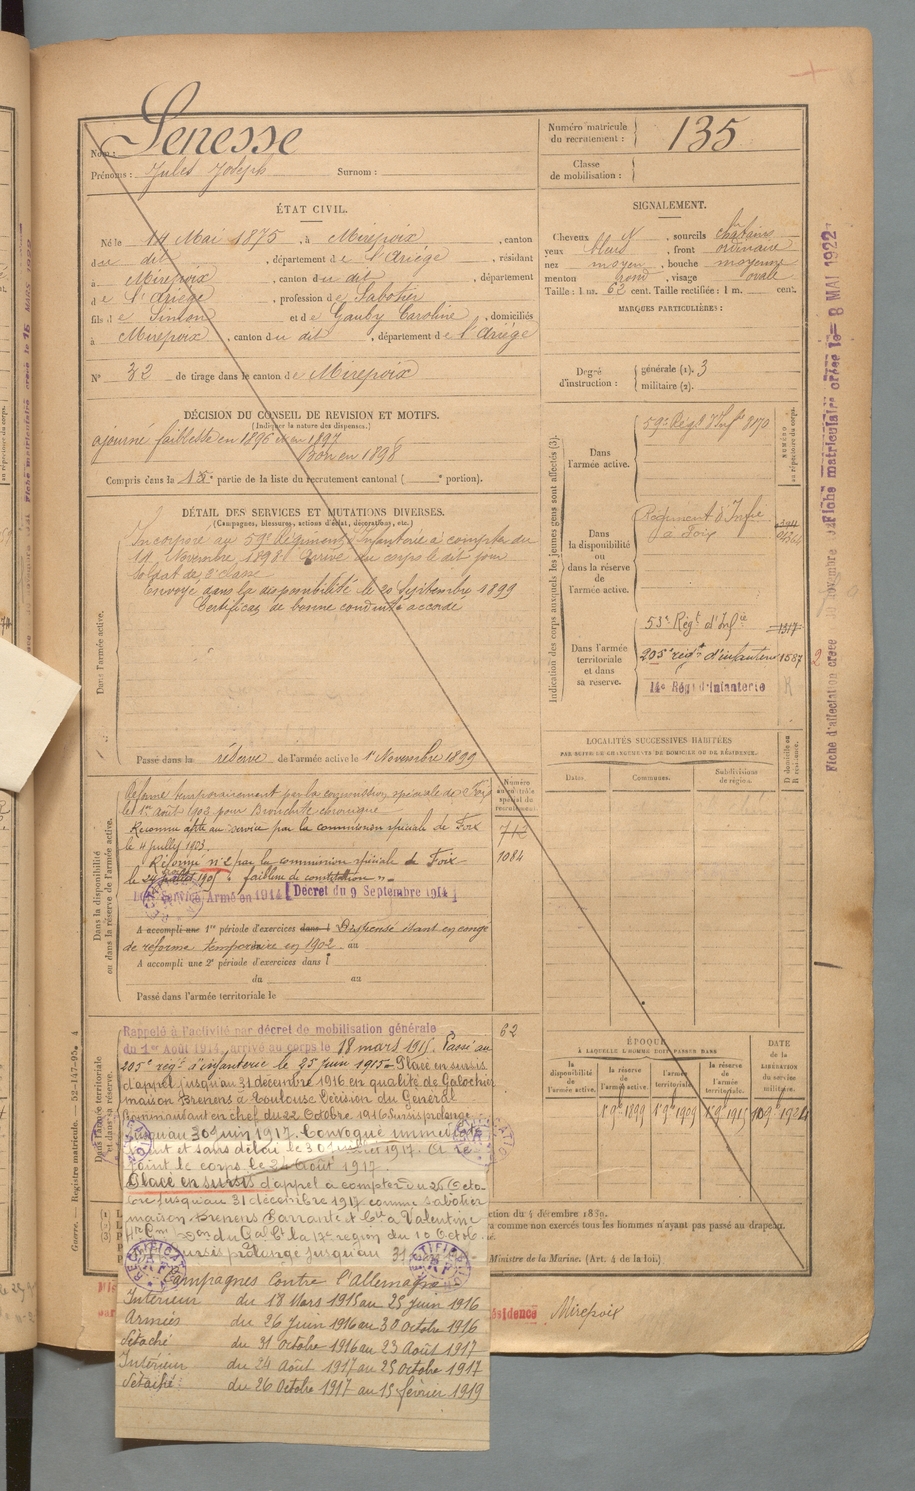 Nom : Senesse
Prénoms : Jules Joseph Surnom :
Numéro matricule du recrutement : 135
Classe de mobilisation :
ÉTAT CIVIL.
Né le 14 Mai 1875, à Mirepoix, canton
du dit, département de l'Ariège, résidant
à Mirepoix, canton du dit, département
de l'Ariège, profession de Sabotier
fils de Simon et de Gauby Caroline, domiciliés
à Mirepoix, canton du dit, département de l'Ariège
N° 32 de tirage dans le canton de Mirepoix
SIGNALEMENT.
Cheveux N, sourcils châtains
yeux bleus, front ordinaire
nez moyen, bouche moyenne
menton rond, visage ovale
Taille : 1 m. 62 cent. Taille rectifiée : 1 m. cent.
MARQUES PARTICULIÈRES :
Degré d'instruction : générale (1). 3
militaire (2).
DÉCISION DU CONSEIL DE REVISION ET MOTIFS.
(Indiquer la nature des dispenses.)
ajourné faiblesse en 1896 et en 1897
Bon en 1898
Compris dans la 1re partie de la liste du recrutement cantonal ( portion).
DÉTAIL DES SERVICES ET MUTATIONS DIVERSES.
(Campagnes, blessures, actions d'éclat, décorations, etc.)
Dans l'armée active.
Incorporé au 59e Régiment d'Infanterie à compter du
14 Novembre 1898. Arrivé au corps le dit jour
Soldat de 2e classe
Envoyé dans la disponibilité le 20 Septembre 1899
Certificat de bonne conduite accordé
Passé dans la réserve de l'armée active le 1er Novembre 1899
Indication des corps auxquels les jeunes gens sont affectés (3).
NUMÉRO au répertoire du corps.
Dans l'armée active.
59e Régt d'Infie 8170
Dans la disponibilité ou dans la réserve de l'armée active.
Régiment d'Infie
à Foix
Dans l'armée territoriale et dans sa réserve.
53e Régt d'Infie 1317
205e régt d'infanterie 1587
14e Régt d'Infanterie
LOCALITÉS SUCCESSIVES HABITÉES
PAR SUITE DE CHANGEMENTS DE DOMICILE OU DE RÉSIDENCE.
Dates. Communes. Subdivisions de région. D domicile ou R résidence.
Dans la disponibilité ou dans la réserve de l'armée active.
Numéro au contrôle spécial du recrutement.
Réformé temporairement par la commission spéciale de Foix
le 1er août 1902 pour Bronchite chronique
Reconnu apte au service par la commission spéciale de Foix
le 4 juillet 1903.
Réformé n° 2 par la commission spéciale de Foix
1084
faiblesse de constitution
Armé en 1914 [Décret du 9 Septembre 1914]
A accompli une 1re période d'exercices dans l Dispensé étant en congé
de réforme temporaire en 1902 au
A accompli une 2e période d'exercices dans l
du au
Passé dans l'armée territoriale le
Dans l'armée territoriale et dans sa réserve.
62
Rappelé à l'activité par décret de mobilisation générale
du 1er Août 1914, arrivé au corps le 18 mars 1915. Passé au
205e régt d'infanterie le 25 juin 1915. Placé en sursis
d'appel jusqu'au 31 décembre 1916 en qualité de Galochier
maison Brenens à Toulouse Décision du Général
Commandant en chef du 22 Octobre 1916 Sursis prolongé
jusqu'au 30 juin 1917. Convoqué immédiate
ment et sans délai le 30 1917. A re
joint le corps le 24 août 1917.
Placé en sursis d'appel à compter du 26 Octo
bre jusqu'au 31 décembre 1917 comme sabotier
maison Brenens Barrante et Cie à Valentine
du Gal Ct la 17e région du 10 Octob.
sursis prolongé jusqu'au 31
RECTIFICATION
Campagnes contre l'Allemagne
Intérieur du 18 Mars 1915 au 25 juin 1916
Armées du 26 juin 1916 au 30 Octobre 1916
Détaché du 31 octobre 1916 au 23 août 1917
Intérieur du 24 Août 1917 au 25 Octobre 1917
Détaché du 26 Octobre 1917 au 15 février 1919
ÉPOQUE
À LAQUELLE L'HOMME DOIT PASSER DANS
la disponibilité de l'armée active. la réserve de l'armée active. l'armée territoriale. la réserve de l'armée territoriale.
DATE de la LIBÉRATION du service militaire.
1er 9bre 1899 1er 9bre 1909 1er 9bre 1915
ction du 4 décembre 1889.
ra comme non exercés tous les hommes n'ayant pas passé au drapeau.
Ministre de la Marine. (Art. 4 de la loi.)
Résidence Mirepoix
Gorre. — Registre matricule. — 52-147-95. 4